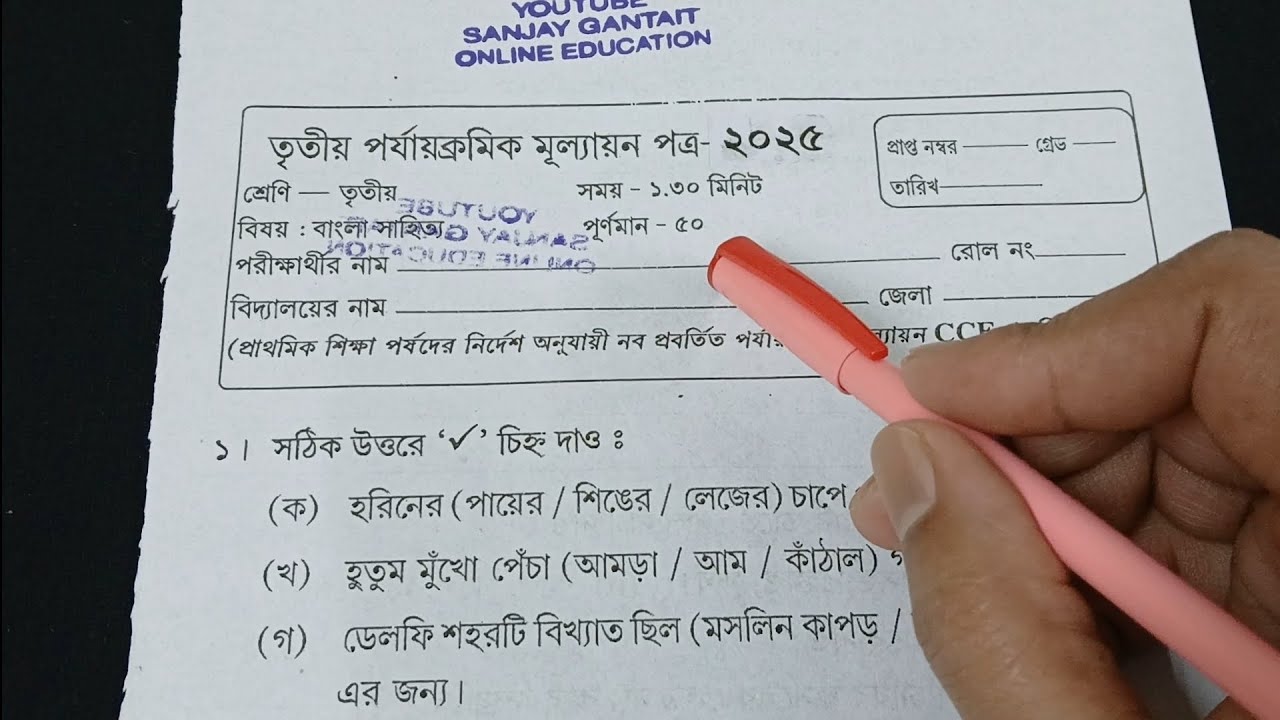 YOUTUBE
SANJAY GANTAIT
ONLINE EDUCATION
তৃতীয় পর্যায়ক্রমিক মূল্যায়ন পত্র- ২০২৫
প্রাপ্ত নম্বর ——— গ্রেড ———
শ্রেণি — তৃতীয়
সময় - ১.৩০ মিনিট
তারিখ———
বিষয় : বাংলা সাহিত্য
পূর্ণমান - ৫০
পরীক্ষার্থীর নাম ——— রোল নং———
বিদ্যালয়ের নাম ——— জেলা ———
(প্রাথমিক শিক্ষা পর্ষদের নির্দেশ অনুযায়ী নব প্রবর্তিত
১। সঠিক উত্তরে ‘✓’ চিহ্ন দাও :
(ক) হরিনের (পায়ের / শিঙের / লেজের) চাপে
(খ) হুতুম মুঁখো পেঁচা (আমড়া / আম / কাঁঠাল)
(গ) ডেলফি শহরটি বিখ্যাত ছিল (মসলিন কাপড় /
এর জন্য।